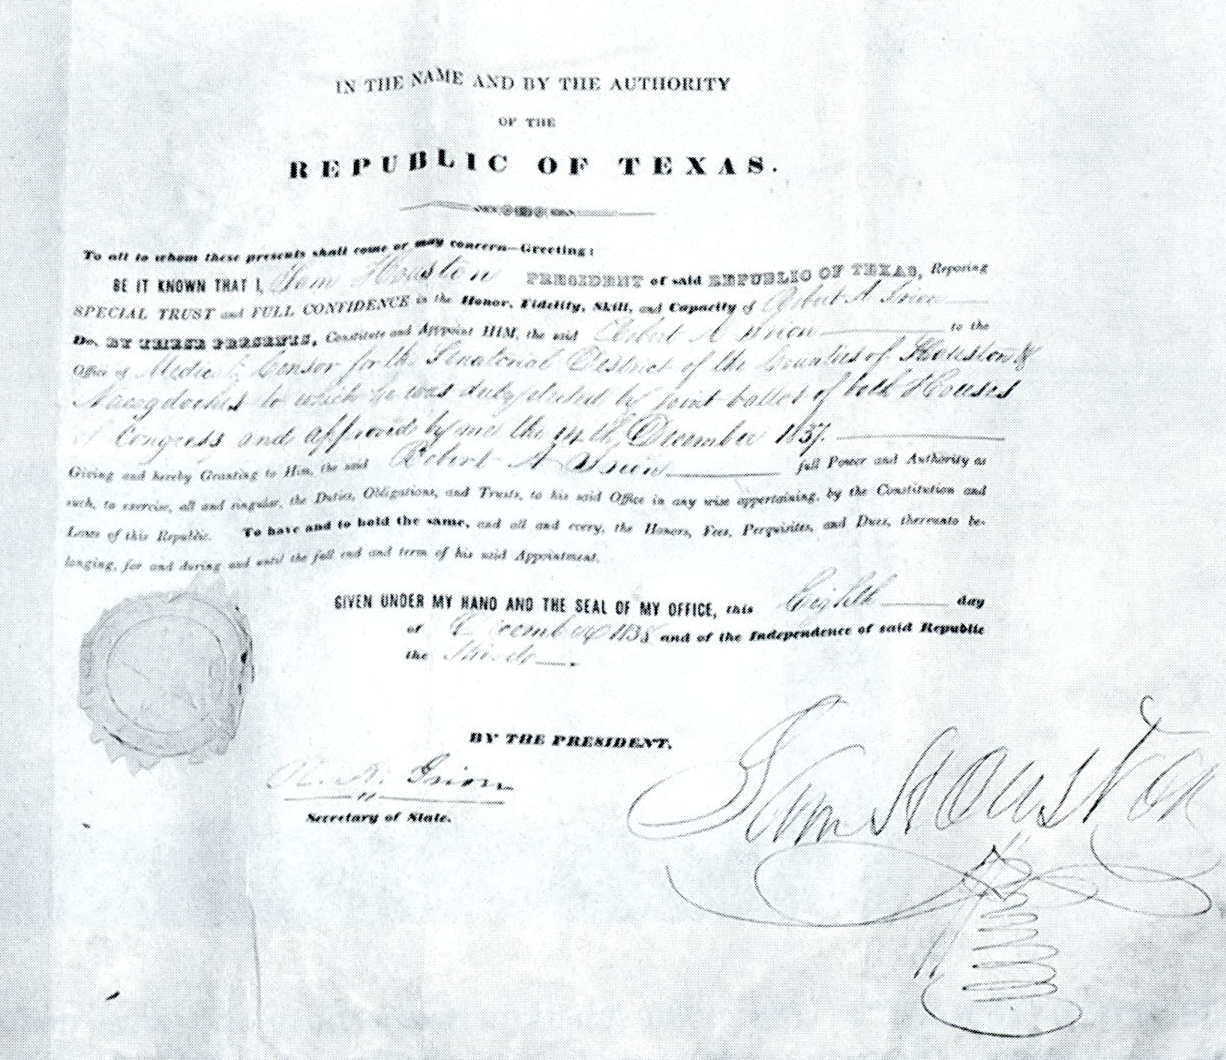 IN THE NAME AND BY THE AUTHORITY
OF THE
REPUBLIC OF TEXAS.
To all to whom these presents shall come or may concern—Greeting:
BE IT KNOWN THAT I, Sam Houston PRESIDENT of said REPUBLIC OF TEXAS, Reposing
SPECIAL TRUST and FULL CONFIDENCE in the Honor, Fidelity, Skill, and Capacity of Robert A Irion
Do, BY THESE PRESENTS, Constitute and Appoint HIM, the said Robert A Irion to the
Office of Medical Censor for the Senatorial District of the Counties of Houston &
Nacogdoches to which he was duly elected by joint ballot of both Houses
of Congress and approved by me the 14th, December 1837.
Giving and hereby Granting to Him, the said Robert A Irion full Power and Authority as
such, to exercise, all and singular, the Duties, Obligations, and Trusts, to his said Office in any wise appertaining, by the Constitution and
Laws of this Republic. To have and to hold the same, and all and every, the Honors, Fees, Perquisites, and Dues, thereunto be-
longing, for and during and until the full end and term of his said Appointment.
GIVEN UNDER MY HAND AND THE SEAL OF MY OFFICE, this Eighth day
of December 1838 and of the Independence of said Republic
the Third.
BY THE PRESIDENT.
R. A. Irion
Secretary of State.
Sam Houston